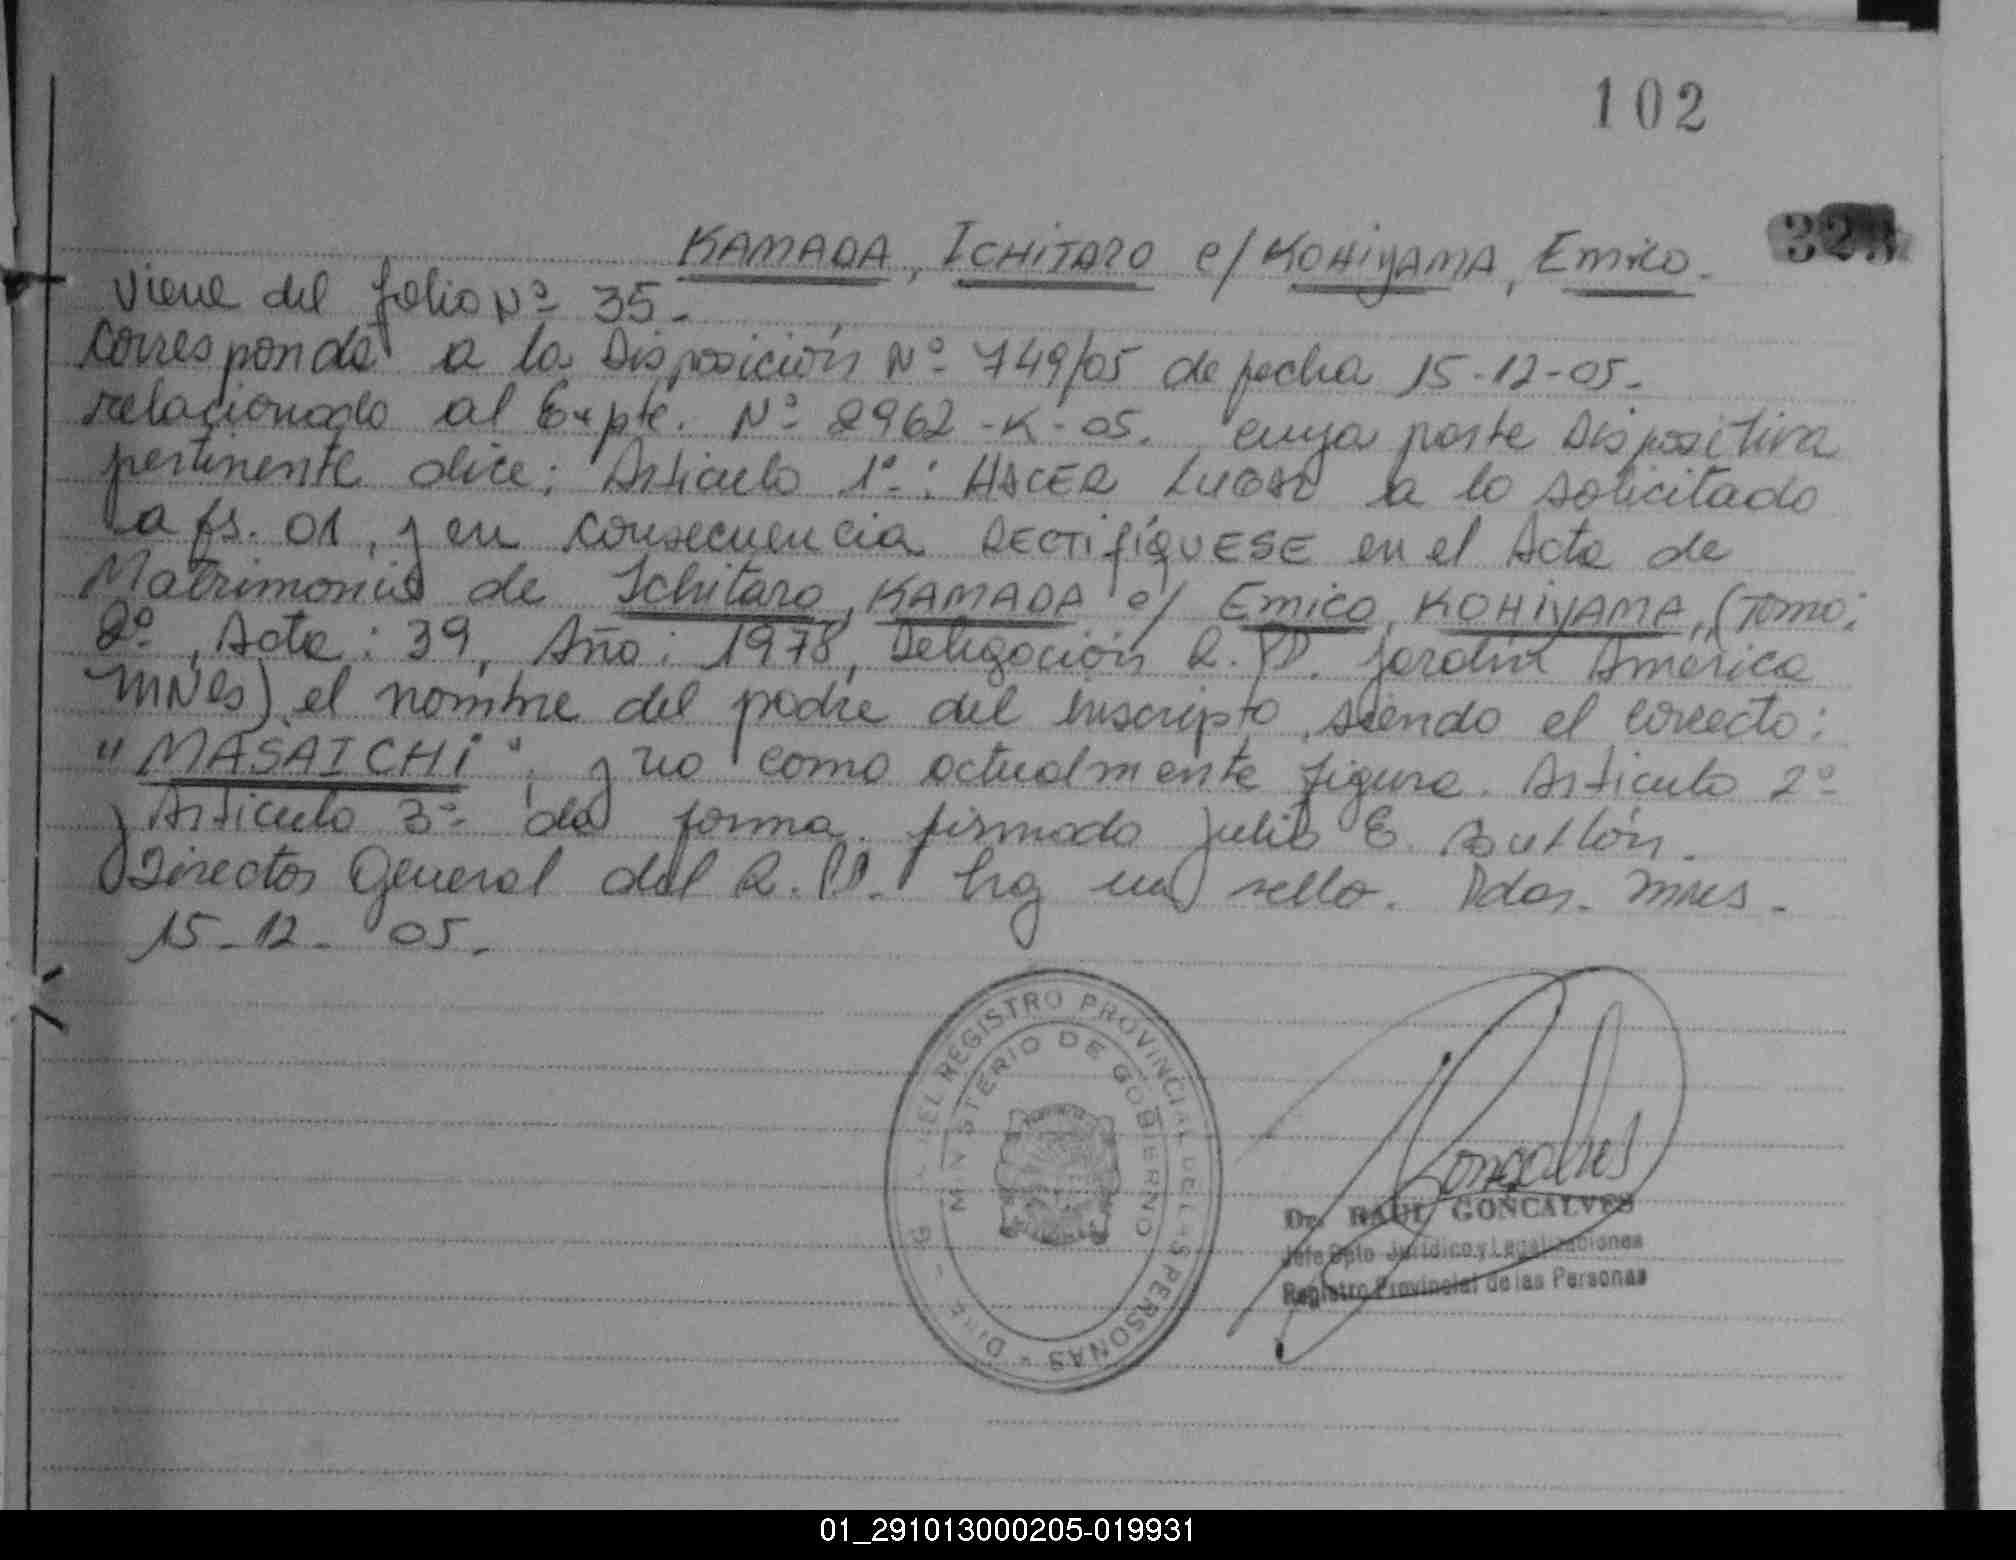 102
328
KAMADA, ICHITARO c/ KOHIYAMA, Emico.
Viene del folio Nº 35.-
Corresponde a la Disposición Nº 749/05 de fecha 15-12-05.-
relacionado al Expte. Nº 2962-K-05. cuya parte Dispositiva
pertinente dice: Artículo 1º: HACER LUGAR a lo solicitado
a fs. 01, y en consecuencia RECTIFÍQUESE en el Acta de
Matrimonio de Ichitaro, KAMADA c/ Emico, KOHIYAMA, (Tomo:
2º, Acta: 39, Año: 1978, Delegación R.P.P. Jardín América
MNES) el nombre del padre del inscripto, siendo el correcto:
"MASAICHI", y no como actualmente figura. Artículo 2º
y Artículo 3º de forma. firmado Julio E.
Director General del R.P.P. hay un sello. Pdas. Mnes.-
15-12-05.-
DEL REGISTRO PROVINCIAL DE LAS PERSONAS
MINISTERIO DE GOBIERNO
Gonçalves
Dr. RAUL GONCALVES
Jefe Dpto Jurídico y Legalizaciones
Registro Provincial de las Personas
01_291013000205-019931